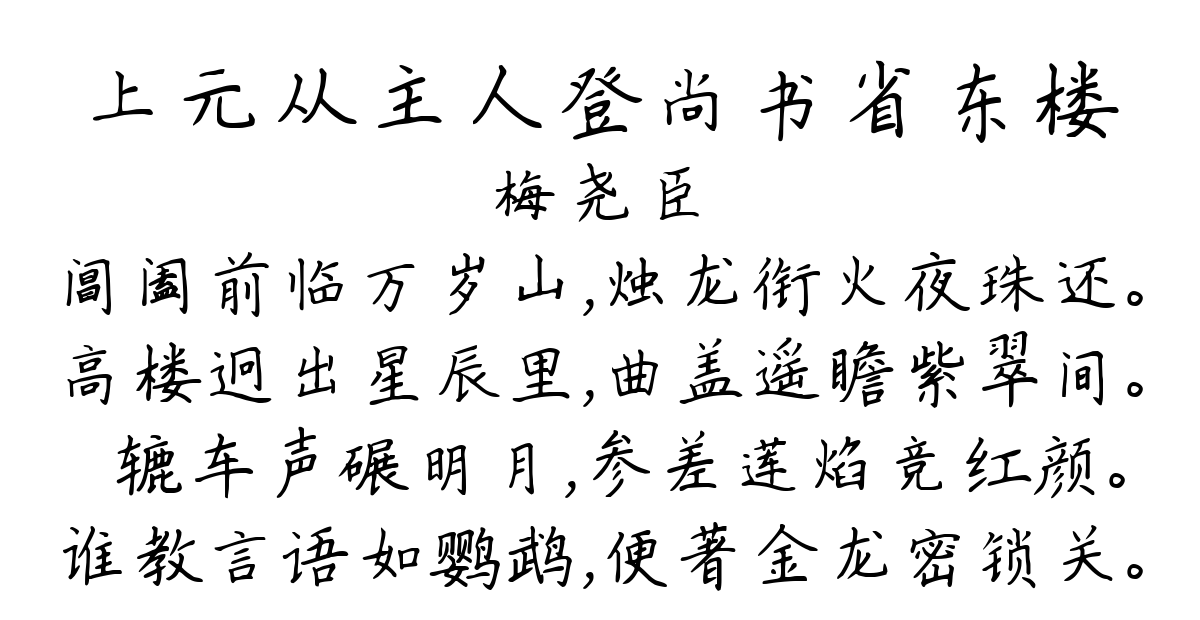 上元从主人登尚书省东楼
梅尧臣
阊阖前临万岁山,烛龙衔火夜珠还。
高楼迥出星辰里,曲盖遥瞻紫翠间。
辘车声碾明月,参差莲焰竞红颜。
谁教言语如鹦鹉,便著金龙密锁关。